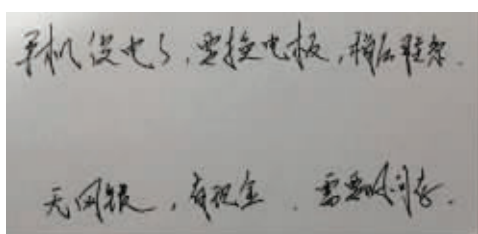 手机没电了，要换电板，稍后联系.
无网银，有现金．需要时间存.